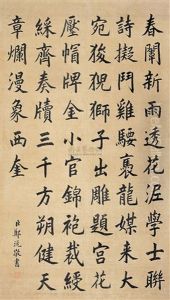 春闌新雨透花泥學士聯
詩擬鬥雞騕褭龍媒來大
宛狻猊獅子出雕題宮花
壓帽牌金小官錦袍裁綬
綵齊奏牘三千方朔健天
章爛漫象西奎
臣鄭沅敬書